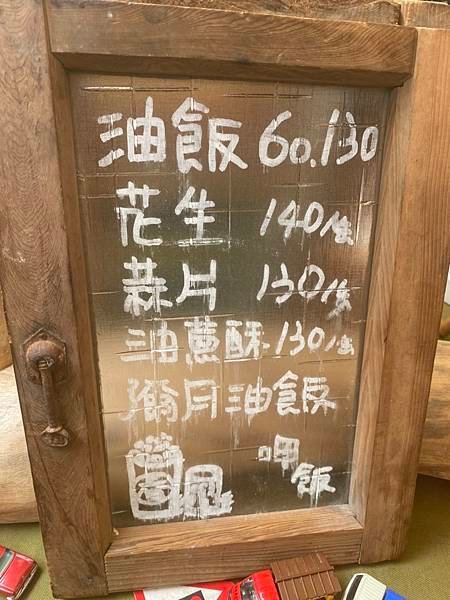 油飯 60.130
花生 140/盒
蒜片 130/盒
油蔥酥.130/盒
彌月油飯
呷飯